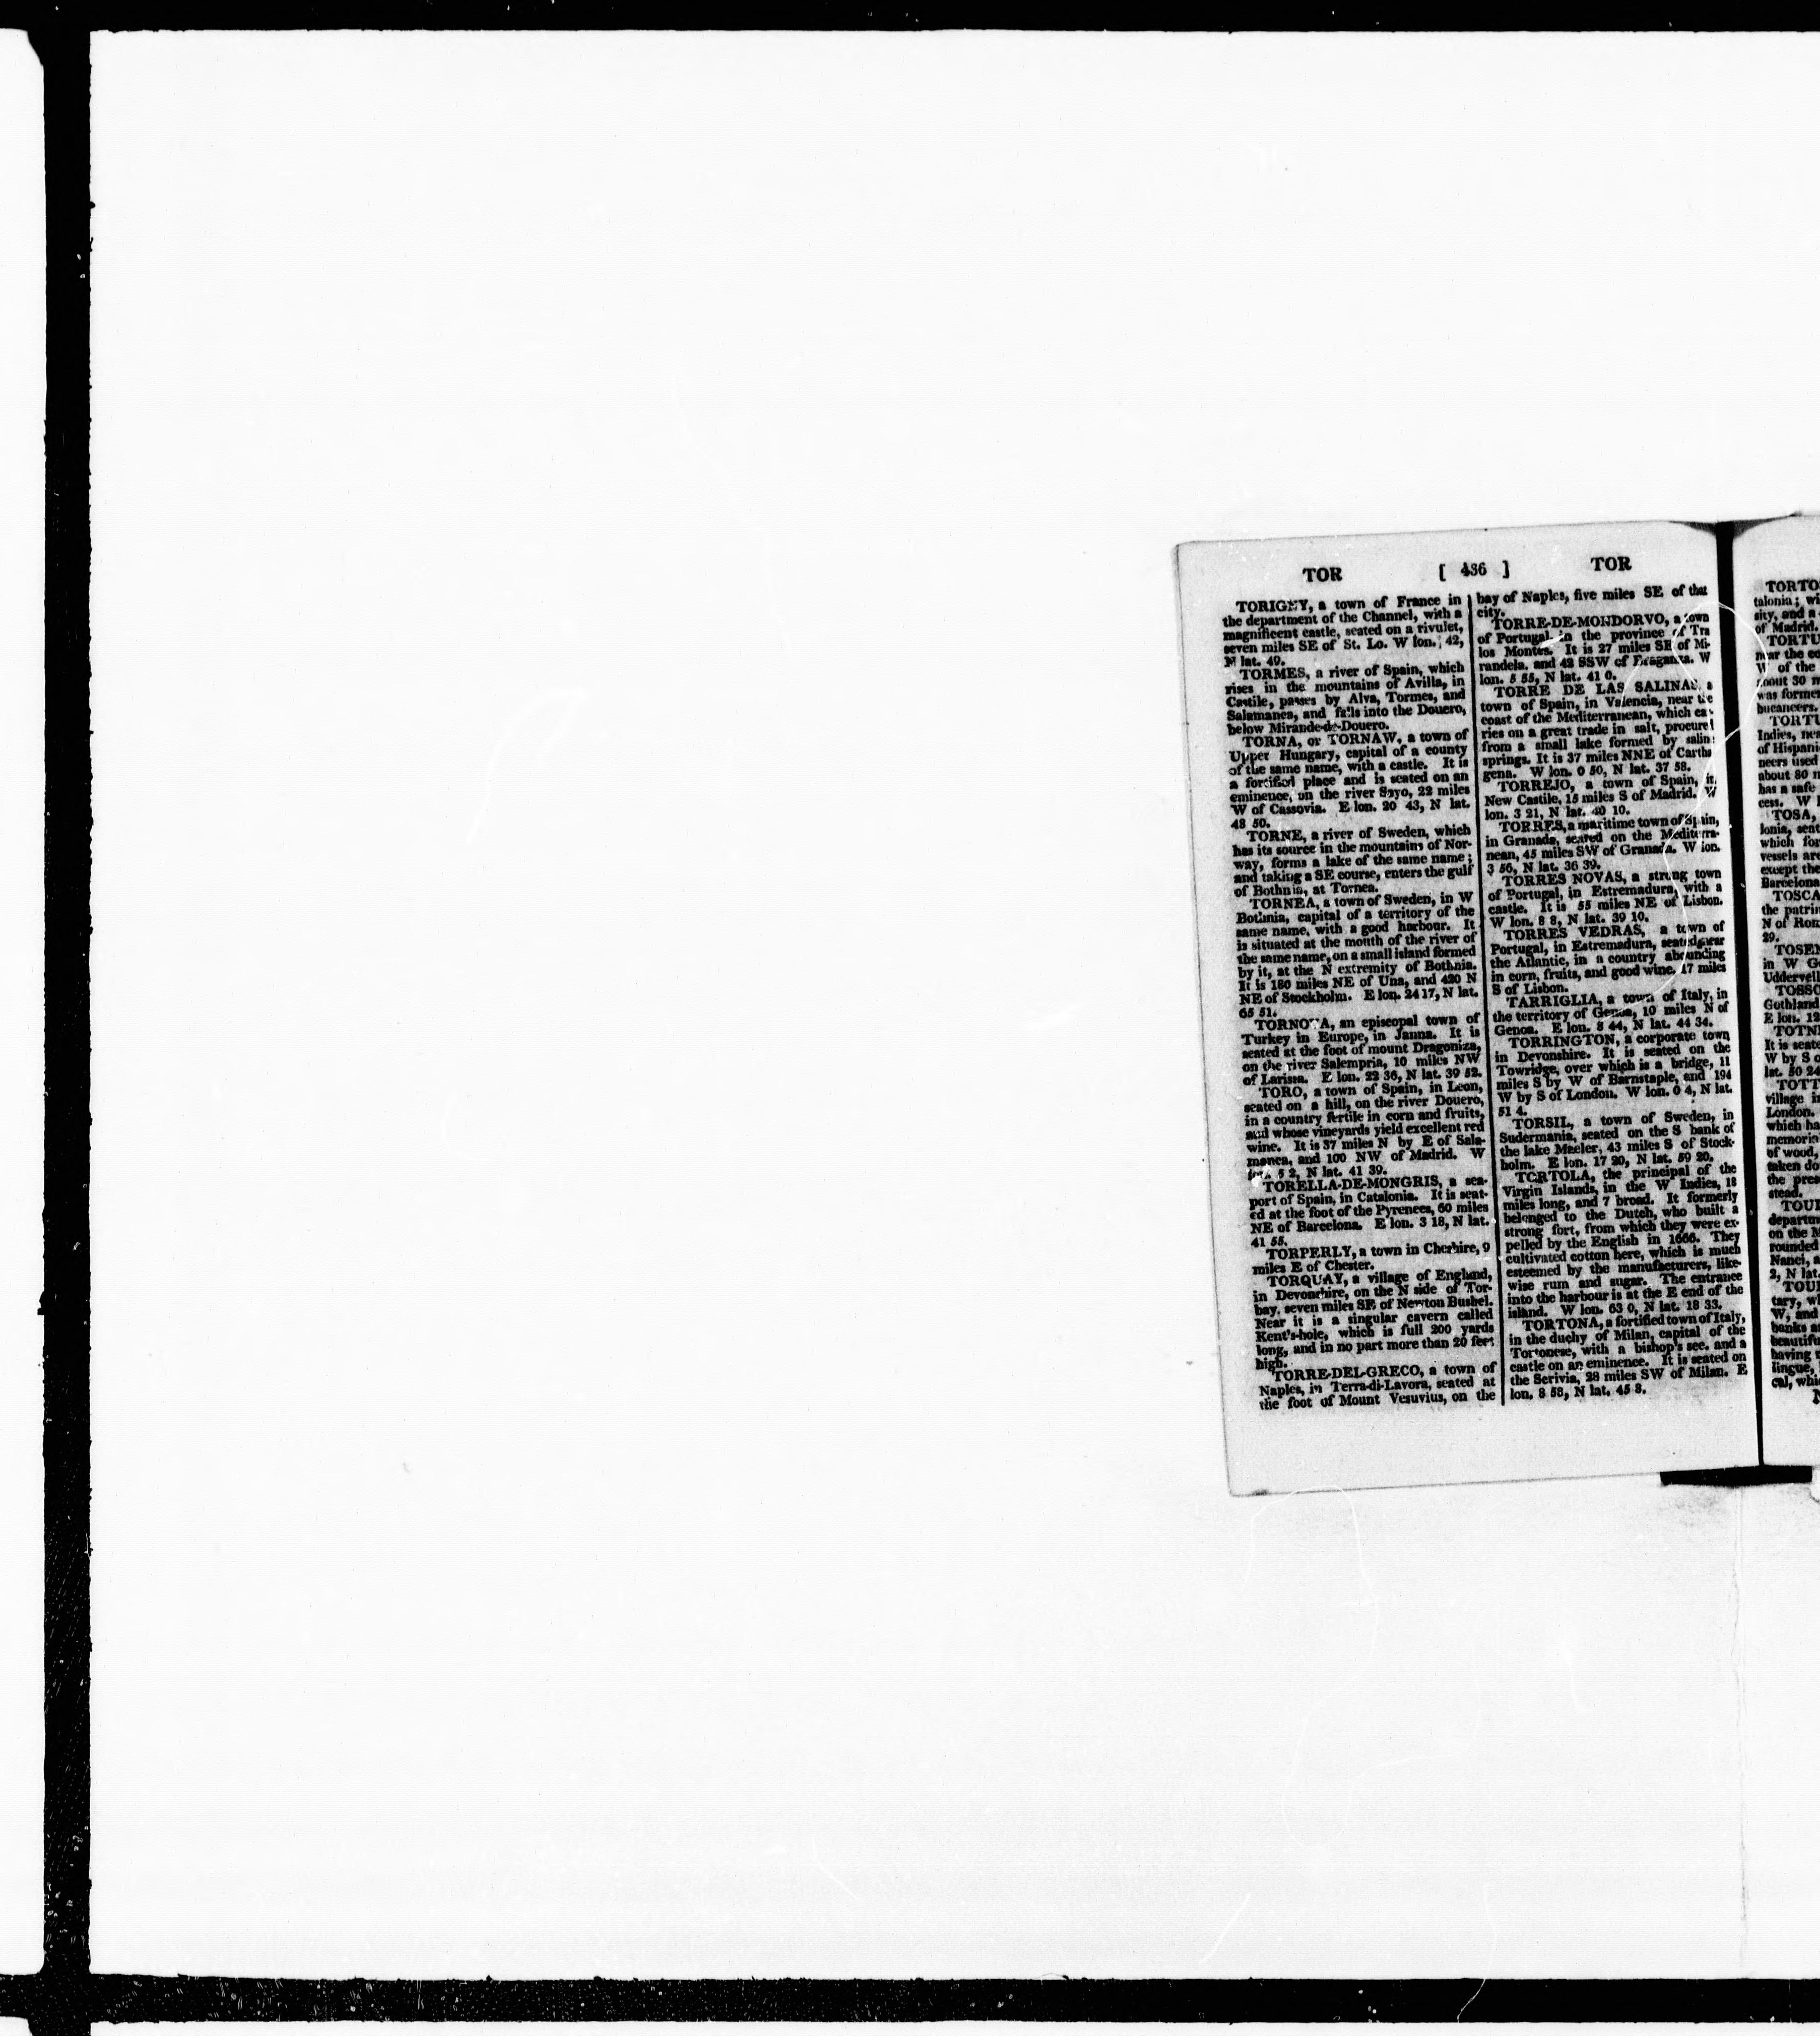 TOR [ 436 ] TOR
TORIGNY, a town of France in
the department of the Channel, with a
magnificent castle, seated on a rivulet,
seven miles SE of St. Lo. W lon. 42,
N lat. 49.
TORMES, a river of Spain, which
rises in the mountains of Avilla, in
Castile, passes by Alva, Tormes, and
Salamanca, and falls into the Douero,
below Mirande-de-Douero.
TORNA, or TORNAW, a town of
Upper Hungary, capital of a county
of the same name, with a castle. It is
a fortified place and is seated on an
eminence, on the river Sayo, 22 miles
W of Cassovia. E lon. 20 43, N lat.
48 50.
TORNE, a river of Sweden, which
has its source in the mountains of Nor-
way, forms a lake of the same name;
and taking a SE course, enters the gulf
of Bothnia, at Tornea.
TORNEA, a town of Sweden, in W
Bothnia, capital of a territory of the
same name, with a good harbour. It
is situated at the mouth of the river of
the same name, on a small island formed
by it, at the N extremity of Bothnia.
It is 180 miles NE of Una, and 420 N
NE of Stockholm. E lon. 24 17, N lat.
65 51.
an episcopal town of
Turkey in Europe, in Janna. It is
seated at the foot of mount Dragoniza,
on the river Salempria, 10 miles NW
of Larissa. E lon. 22 36, N lat. 39 52.
TORO, a town of Spain, in Leon,
seated on a hill, on the river Douero,
in a country fertile in corn and fruits,
and whose vineyards yield excellent red
wine. It is 37 miles N by E of Sala-
manca, and 100 NW of Madrid. W
lon. 5 2, N lat. 41 39.
TORELLA-DE-MONGRIS, a sea-
port of Spain, in Catalonia. It is seat-
ed at the foot of the Pyrenees, 60 miles
NE of Barcelona. E lon. 3 18, N lat.
41 55.
TORPERLY, a town in Cheshire, 9
miles E of Chester.
TORQUAY, a village of England,
in Devonshire, on the N side of Tor-
bay, seven miles SE of Newton Bushel.
Near it is a singular cavern called
Kent's-hole, which is full 200 yards
long, and in no part more than 20 feet
high.
TORRE-DEL-GRECO, a town of
Naples, in Terra-di-Lavora, seated at
the foot of Mount Vesuvius, on the
bay of Naples, five miles SE of that
city.
TORRE-DE-MONDORVO, a town
of Portugal, in the province of Tra
los Montes. It is 27 miles SE of Mi-
randela, and 42 SSW of Braganza. W
lon. 5 55, N lat. 41 0.
TORRE DE LAS SALINAS, a
town of Spain, in Valencia, near the
coast of the Mediterranean, which ca
ries on a great trade in salt, procure
from a small lake formed by salin
springs. It is 37 miles NNE of Cartha
gena. W lon. 0 50, N lat. 37 58.
TORREJO, a town of Spain, in
New Castile, 15 miles S of Madrid. W
lon. 3 21, N lat. 40 10.
TORRES, a maritime town of Spain,
in Granada, seated on the Mediterra-
nean, 45 miles SW of Granada. W lon.
3 56, N lat. 36 39.
TORRES NOVAS, a strong town
of Portugal, in Estremadura, with a
castle. It is 55 miles NE of Lisbon.
W lon. 8 8, N lat. 39 10.
TORRES VEDRAS, a town of
Portugal, in Estremadura, seated near
the Atlantic, in a country abounding
in corn, fruits, and good wine. 17 miles
S of Lisbon.
TARRIGLIA, a town of Italy, in
the territory of Genoa, 10 miles N of
Genoa. E lon. 8 44, N lat. 44 34.
TORRINGTON, a corporate town
in Devonshire. It is seated on the
Towridge, over which is a bridge, 11
miles S by W of Barnstaple, and 194
W by S of London. W lon. 0 4, N lat.
51 4.
TORSIL, a town of Sweden, in
Sudermania, seated on the S bank of
the lake Maeler, 43 miles S of Stock-
holm. E lon. 17 20, N lat. 59 20.
TORTOLA, the principal of the
Virgin Islands, in the W Indies, 18
miles long, and 7 broad. It formerly
belonged to the Dutch, who built a
strong fort, from which they were ex-
pelled by the English in 1666. They
cultivated cotton here, which is much
esteemed by the manufacturers, like-
wise rum and sugar. The entrance
into the harbour is at the E end of the
island. W lon. 63 0, N lat. 18 33.
TORTONA, a fortified town of Italy,
in the duchy of Milan, capital of the
Tortonese, with a bishop's see, and a
castle on an eminence. It is seated on
the Scrivia, 28 miles SW of Milan. E
lon. 8 58, N lat. 45 8.
TORTO
talonia; wi
sity, and w
of Madrid.
TORTU
near the co
W of the
about 30 m
was forme
bucaneers.
TORTU
Indies, nea
of Hispani
neers used
about 80 m
has a safe
cess. W l
TOSA,
lonia, seat
which for
vessels are
except the
Barcelona
TOSCA
the patrim
N of Rom
29.
TOSEN
in W Go
Uddervell
TOSSO
Gothland
E lon. 12
TOTN
It is seate
W by S o
lat. 50 24
TOTT
village in
London.
which ha
memoria
of wood,
taken do
the pres
stead.
TOUL
departm
on the M
rounded
Nanci, a
2, N lat.
TOUL
tary, wh
W, and
banks ar
beautifu
having t
lingue,
cal, whic